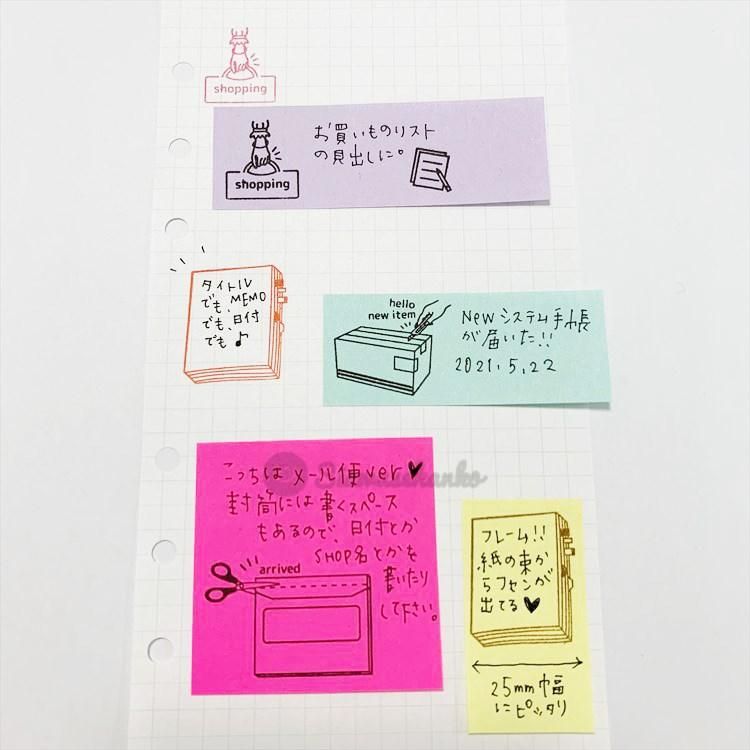 shopping
お買いものリスト
の見出しに。
shopping
タイトル
でも、MEMO
でも、日付
でも♪
hello
new item
Newシステム手帳
が届いた!!
2021.5.22
こっちはメール便ver♥
封筒には書くスペース
もあるので、日付とか
SHOP名とかを
書いたり
して下さい。
arrived
フレーム!!
紙の束か
らフセンが
出てる♥
25mm幅
にピッタリ